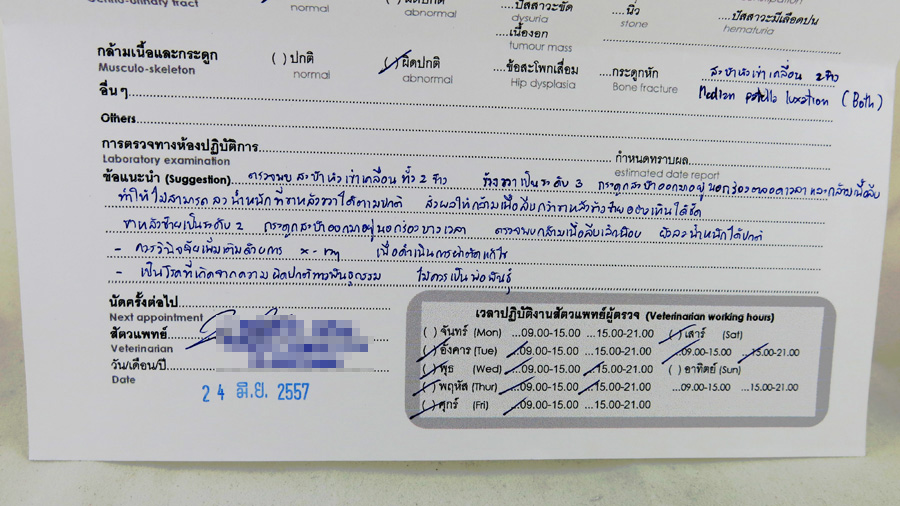 Genito-urinary tract normal ผิดปกติ abnormal ปัสสาวะขัด dysuria นิ่ว stone ปัสสาวะมีเลือดปน hematuria
เนื้องอก tumour mass
กล้ามเนื้อและกระดูก ( ) ปกติ ( ) ผิดปกติ ข้อสะโพกเสื่อม กระดูกหัก สะบ้าหัวเข่าเคลื่อน 2 ข้าง
Musculo-skeleton normal abnormal Hip dysplasia Bone fracture Median patella luxation (Both)
อื่น ๆ
Others
การตรวจทางห้องปฏิบัติการ กำหนดทราบผล
Laboratory examination estimated date report
ข้อแนะนำ (Suggestion) ตรวจพบ สะบ้าหัวเข่าเคลื่อน ทั้ง 2 ข้าง ข้างขวาเป็นระดับ 3 กระดูกสะบ้าออกมาอยู่นอกร่องตลอดเวลา และกล้ามเนื้อลีบ
ทำให้ไม่สามารถ ลงน้ำหนักที่ขาหลังขวาได้ตามปกติ ส่งผลให้กล้ามเนื้อลีบกว่าขาหลังข้างซ้ายอย่างเห็นได้ชัด
ขาหลังซ้ายเป็นระดับ 2 กระดูกสะบ้าออกมาอยู่นอกร่องบางเวลา ตรวจพบกล้ามเนื้อลีบเล็กน้อย ยังลงน้ำหนักได้ปกติ
- ควรวินิจฉัยเพิ่มเติมด้วยการ x-ray เพื่อดำเนินการผ่าตัดแก้ไข
- เป็นโรคที่เกิดจากความผิดปกติทางพันธุกรรม ไม่ควรเป็นพ่อพันธุ์
นัดครั้งต่อไป
Next appointment
สัตวแพทย์
Veterinarian
วัน/เดือน/ปี
Date
24 มิ.ย. 2557
เวลาปฏิบัติงานสัตวแพทย์ผู้ตรวจ (Veterinarian working hours)
( ) จันทร์ (Mon) ...09.00-15.00 ...15.00-21.00 ( ) เสาร์ (Sat)
( ) อังคาร (Tue) ...09.00-15.00 ...15.00-21.00 ...09.00-15.00 ...15.00-21.00
( ) พุธ (Wed) ...09.00-15.00 ...15.00-21.00 ( ) อาทิตย์ (Sun)
( ) พฤหัส (Thur) ...09.00-15.00 ...15.00-21.00 ...09.00-15.00 ...15.00-21.00
( ) ศุกร์ (Fri) ...09.00-15.00 ...15.00-21.00